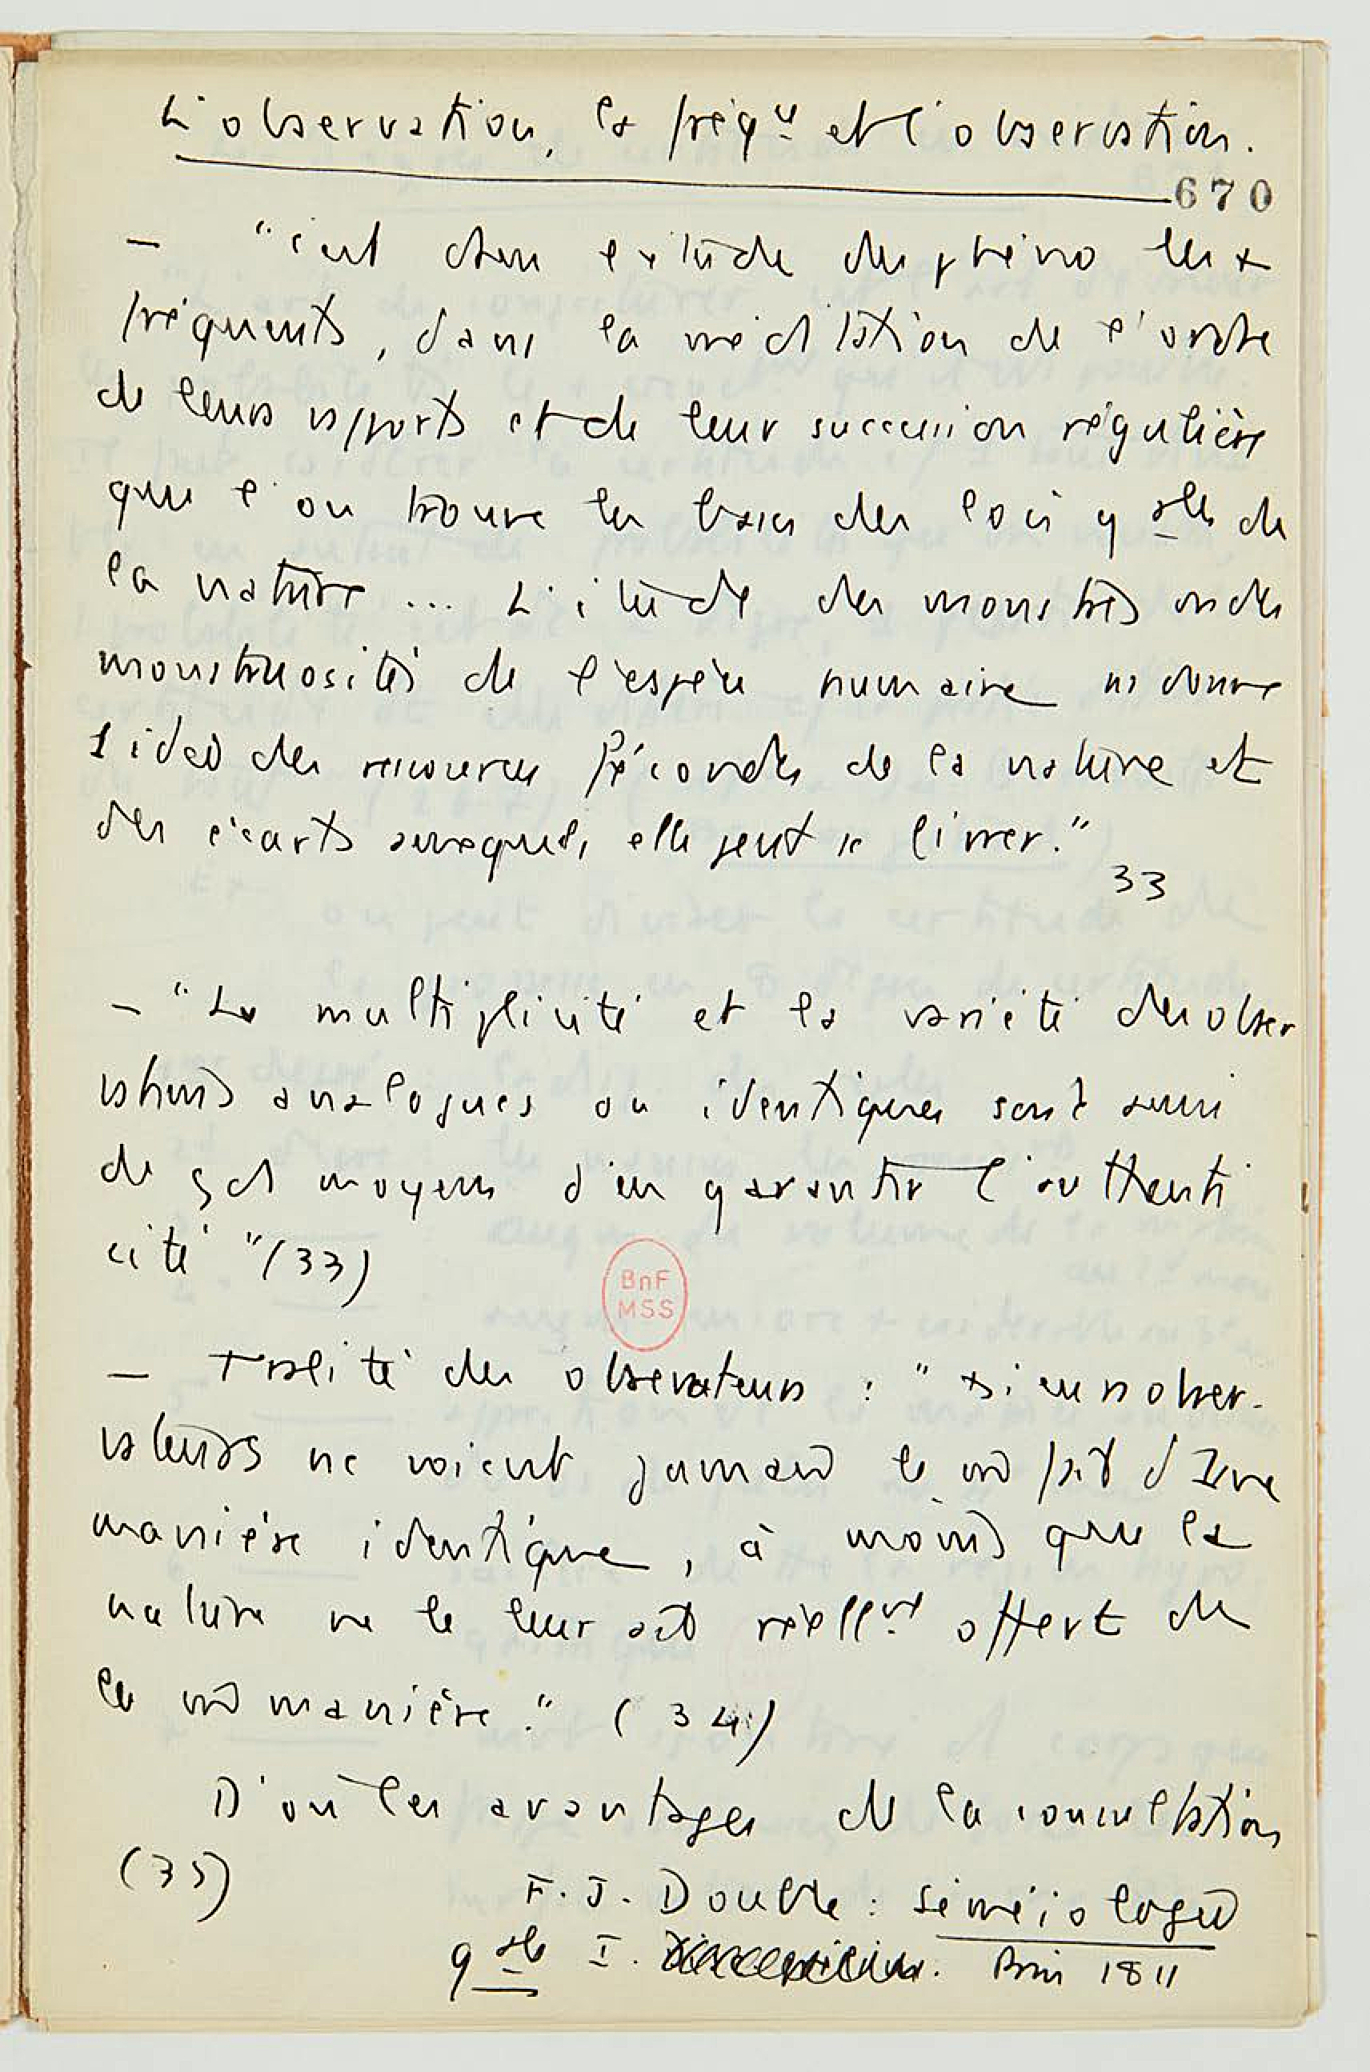 L'observation, la fréq^ce et l'observation.
670
— "c'est dans l'étude des phéno les +
fréquents, dans la méditation de l'ordre
de leurs rapports et de leur succession régulière
que l'on trouve les bases des lois g^ales de
la nature ... L'étude des monstres ou des
monstruosités de l'espèce humaine ns donne
1 idée des ressources fécondes de la nature et
des écarts auxquels elle peut se livrer."
33
— "La multiplicité et la variété des obser
vations analogues ou identiques sont aussi
de gds moyens d'en garantir l'authenti
cité" (33)
BnF
MSS
— +ralité des observateurs : "+sieurs obser-
vateurs ne voient jamais le m fait d'1
manière identique, à moins que la
nature ne le leur ait réell^nt offert de
la m manière." (34)
D'où les avantages de la consultation
(35)
F. J. Double : Séméiologie
g^ale I. Paris 1811